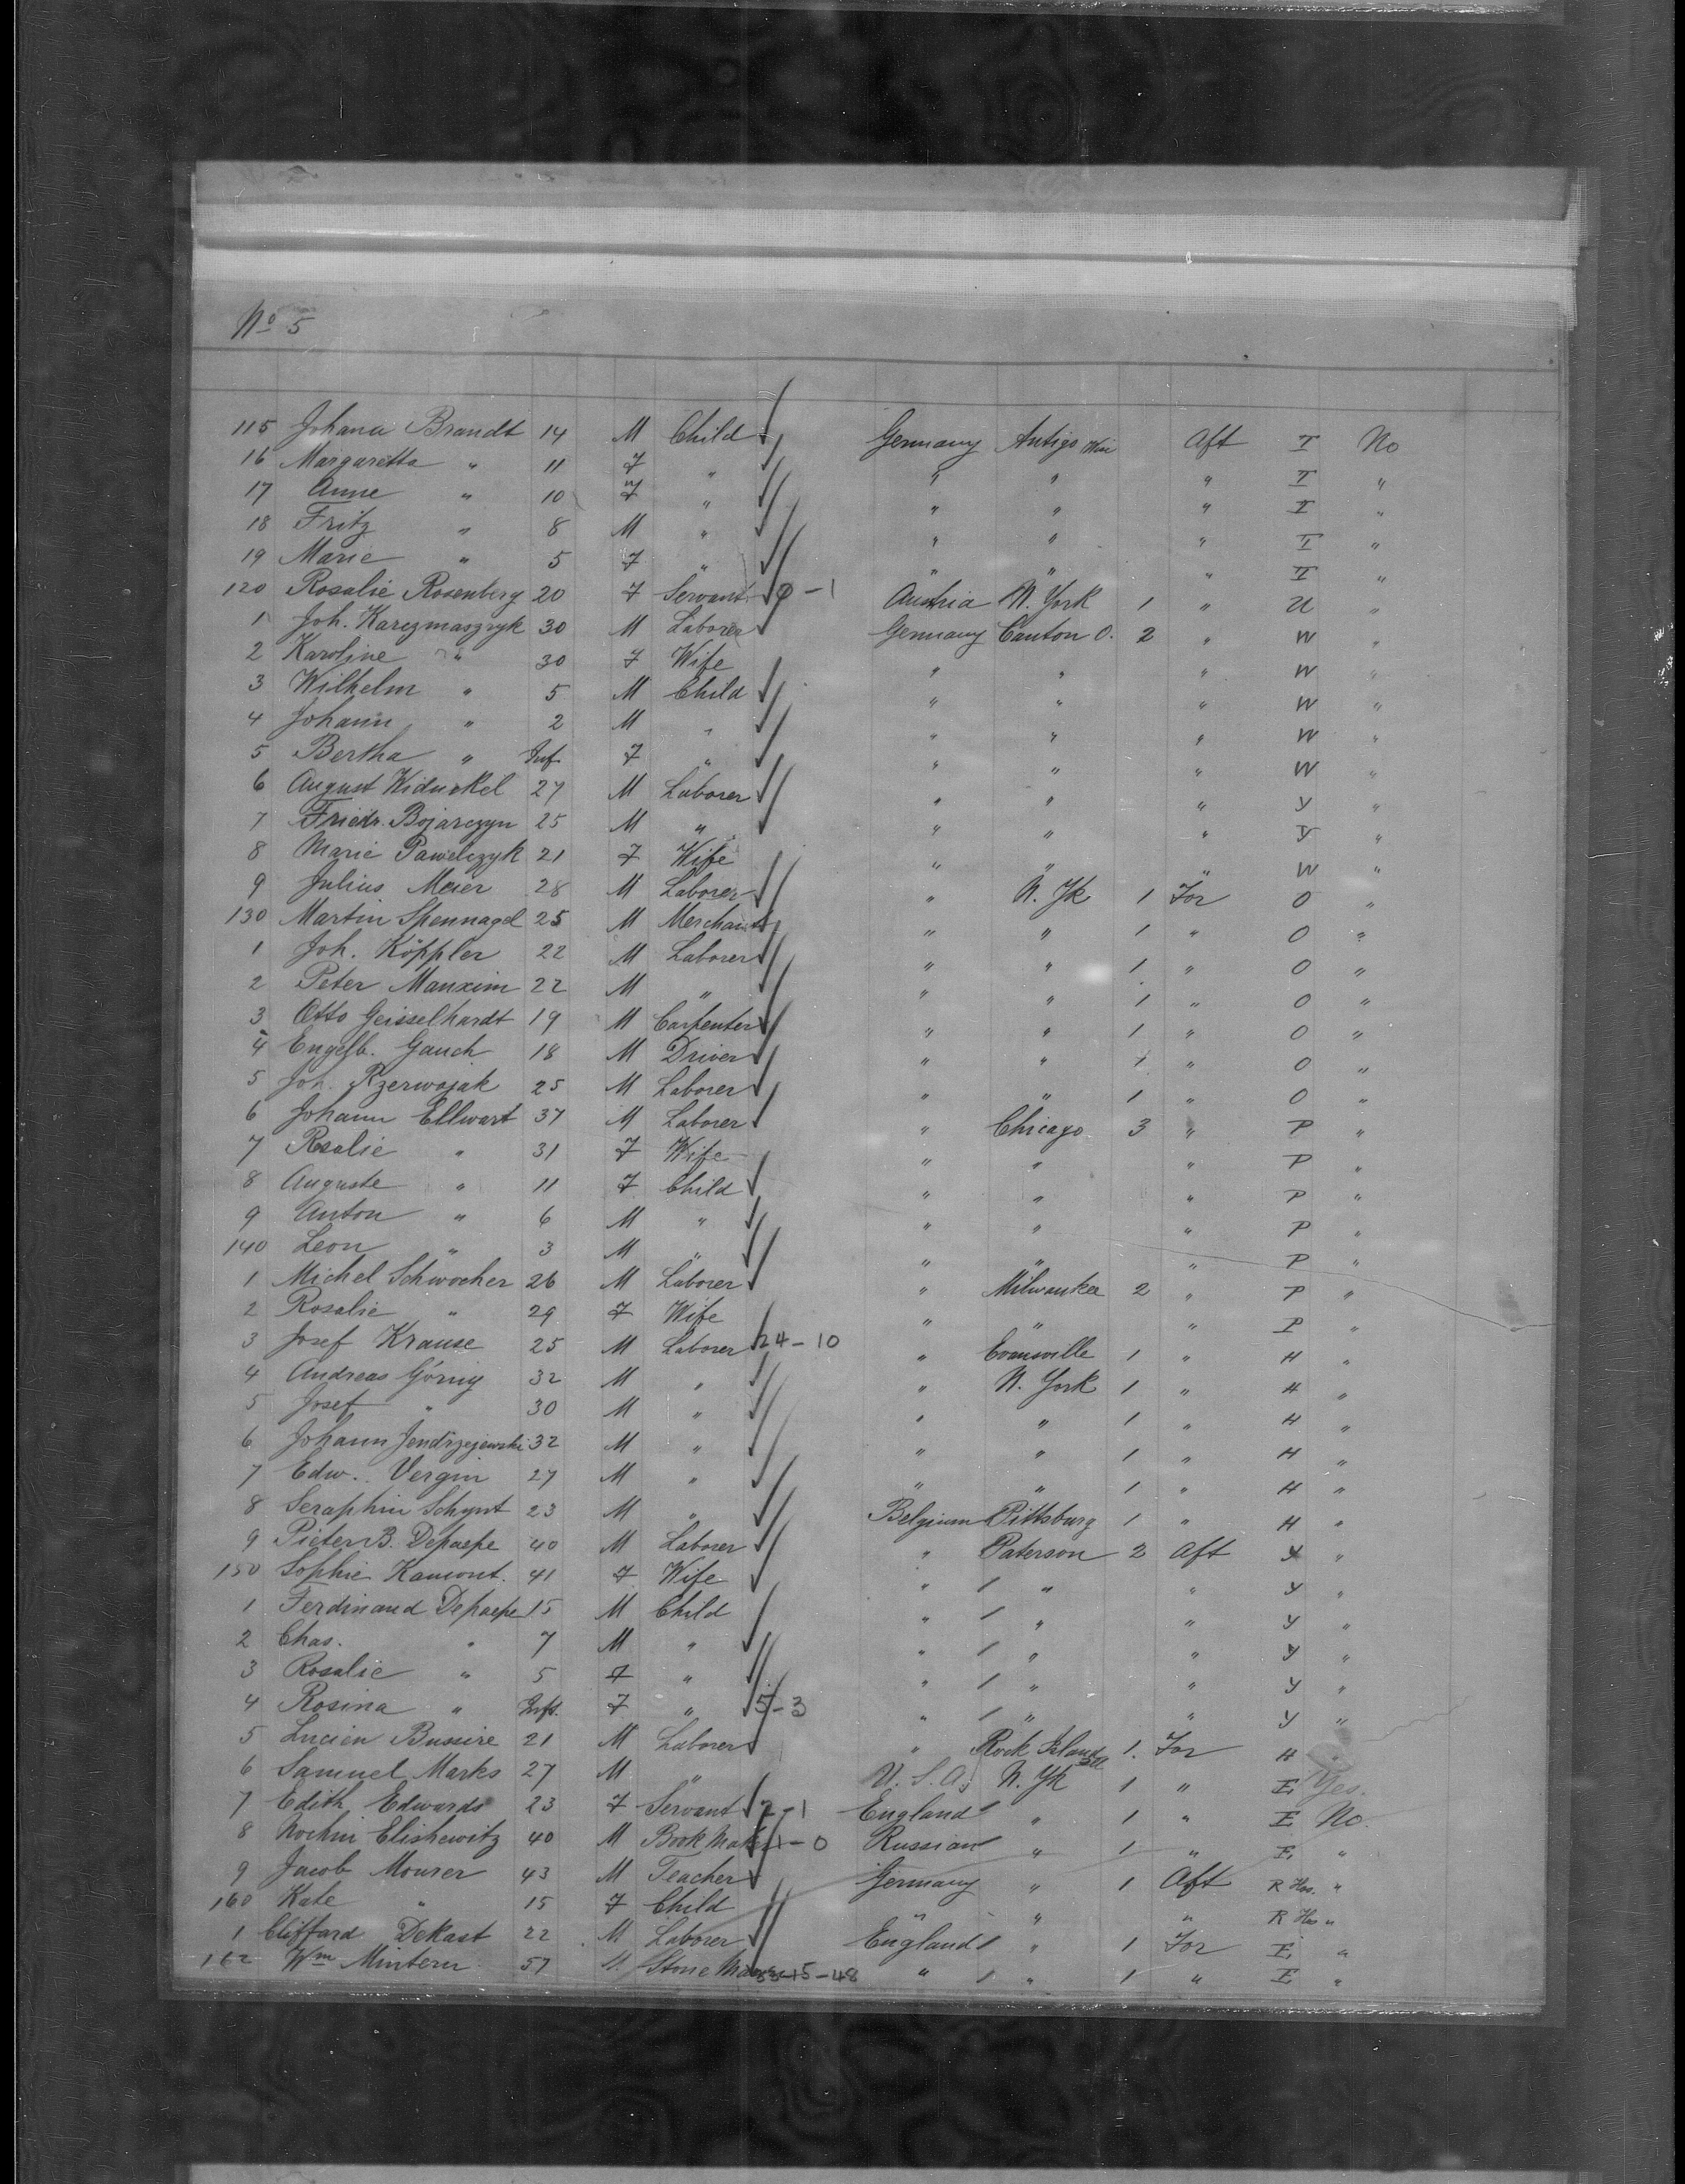 No 5
115 Johann Brandt 14 M Child Germany Antigo Wis Aft T No
16 Margaretta " 11 F " " " " T "
17 Anne " 10 F " " " " T "
18 Fritz " 8 M " " " " T "
19 Marie " 5 F " " " " T "
120 Rosalie Rosenberg 20 F Servant - 1 Austria N. York 1 " U "
1 Joh. Karczmaszyk 30 M Laborer Germany Canton O. 2 " W "
2 Karoline " 30 F Wife " " " W "
3 Wilhelm " 5 M Child " " " W "
4 Johann " 2 M " " " " W "
5 Bertha " Inf. F " " " " W "
6 August 27 M Laborer " " " Y "
7 Friedr. Bojarczyn 25 M " " " " Y "
8 Marie Pawelczyk 21 F Wife " " " W "
9 Julius Meier 28 M Laborer " N. Yk 1 For O "
130 Martin Spennagel 25 M Merchant " " 1 " O "
1 Joh. Köppler 22 M Laborer " " 1 " O "
2 Peter Manxim 22 M " " " 1 " O "
3 Otto Geisselhardt 19 M Carpenter " " 1 " O "
4 Engelb. Gauch 18 M Driver " " 1 " O "
5 Joh. Rzerwojak 25 M Laborer " " 1 " O "
6 Johann Ellwart 37 M Laborer " Chicago 3 " P "
7 Rosalie " 31 F Wife " " " P "
8 Auguste " 11 F Child " " " P "
9 Anton " 6 M " " " " P "
140 Leon " 3 M " " " " P "
1 Michel Schwocher 26 M Laborer " Milwaukee 2 " P "
2 Rosalie " 29 F Wife " " " P "
3 Josef Krause 25 M Laborer 24-10 " Evansville 1 " H "
4 Andreas Görnig 32 M " " N. York 1 " H "
5 Josef " 30 M " " " 1 " H "
6 Johann Jendrzejewski 32 M " " " 1 " H "
7 Edw. Vergin 27 M " " " 1 " H "
8 Seraphin Schynt 23 M " Belgium Pittsburg 1 " H "
9 Pieter B. Depaepe 40 M Laborer " Paterson 2 Aft Y "
150 Sophie Kamont. 41 F Wife " " " Y "
1 Ferdinand Depaepe 15 M Child " " " Y "
2 Chas. " 7 M " " " " Y "
3 Rosalie " 5 F " " " " Y "
4 Rosina " Inft. F " 5-3 " " " Y "
5 Lucien Bussire 21 M Laborer " Rock Island Ill 1. For H "
6 Samuel Marks 27 M " U.S.A. N. Yk 1 " E Yes.
7 Edith Edwards 23 F Servant 2-1 England " 1 " E No.
8 Nochin Elishewitz 40 M Book Maker 1-0 Russian " 1 " E "
9 Jacob Mourer 43 M Teacher Germany " 1 Aft R Hos. "
160 Kate " 15 F Child " " " R Hos "
1 Cliffard DeKast 22 M Laborer England " 1 For E "
162 Wm Mintern 57 M. Stone Mason 15-48 " " 1 " E "